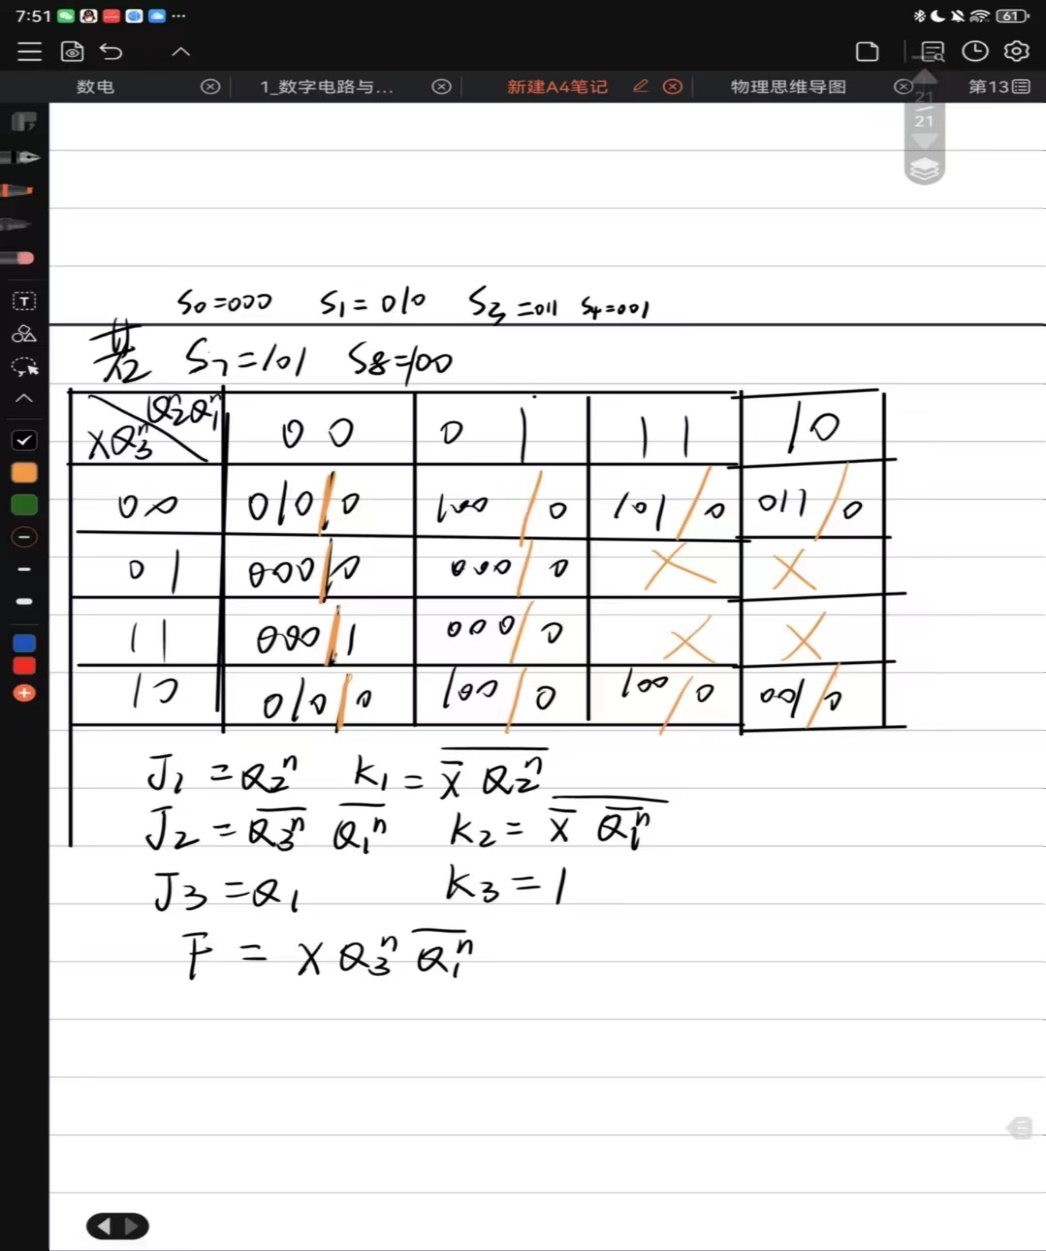 7:51 61
数电 1_数字电路与... 新建A4笔记 物理思维导图 第13
21
21
S₀=000 S₁=010 S₃=011 S₄=001
S₇=101 S₈=100
XQ₃ⁿ Q₂ⁿQ₁ⁿ 00 01 11 10
00 010/0 100/0 101/0 011/0
01 000/0 000/0 X X
11 000/1 000/0 X X
10 010/0 100/0 100/0 001/0
J₁ = Q₂ⁿ K₁ = \overline{\overline{X} Q₂ⁿ}
J₂ = \overline{Q₃ⁿ} \overline{Q₁ⁿ} K₂ = \overline{\overline{X} \overline{Q₁ⁿ}}
J₃ = Q₁ K₃ = 1
F = X Q₃ⁿ \overline{Q₁ⁿ}